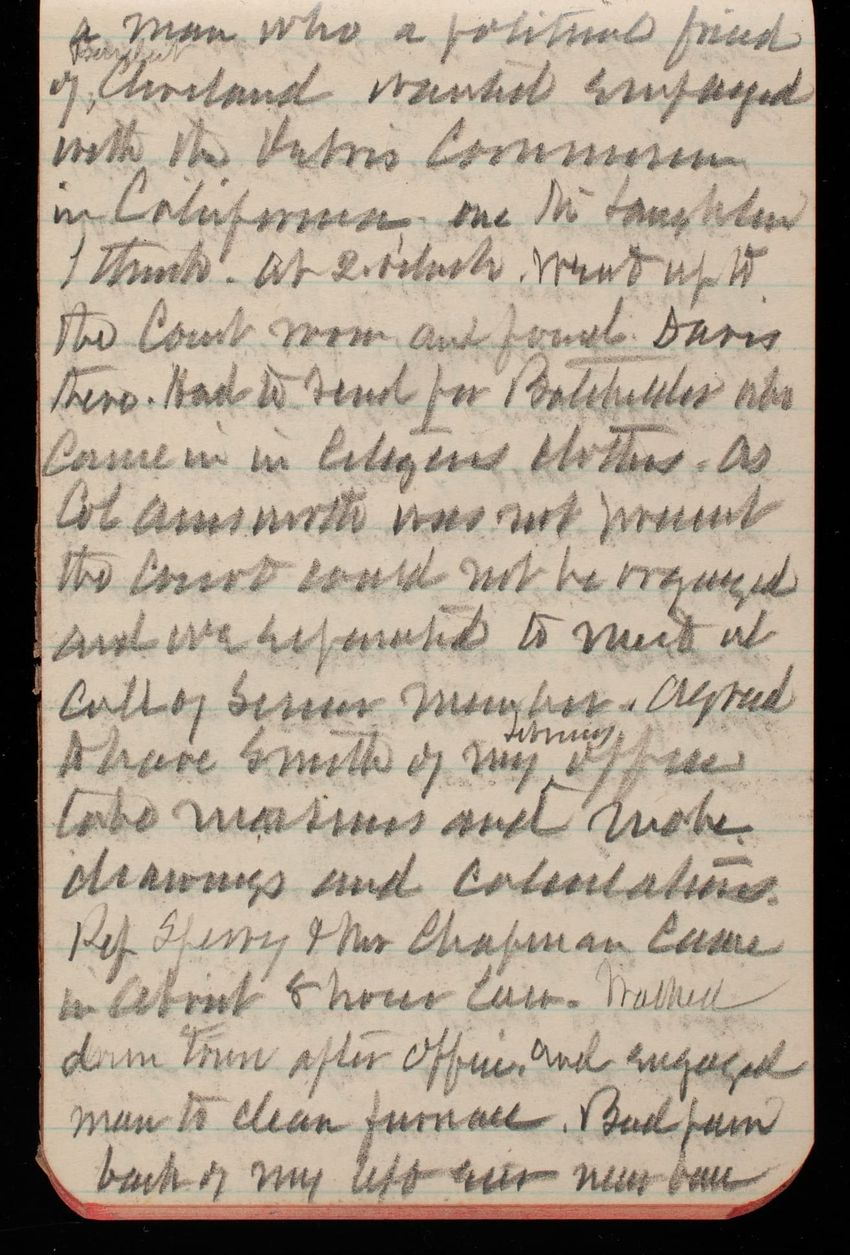 a man who a political friend
President
of Cleveland wanted employed
with the Debris Commission
in California one McLaughlin
I think. At 2 o'clock. Went up to
the Court room and found Davis
there. Had to send for Batchelder who
Came in in Citizens clothes. As
Col Ainsworth was not present
the Court could not be organized
and we separated to meet at
Call of Senior member. Agreed
to have Smith of my office
take measures and make
drawings and calculations.
Rep Sperry & Mr Chapman Came
in about 8 hour Law. Walked
down town after office. and engaged
man to clean furnace. Bad pain
back of my left ear near base